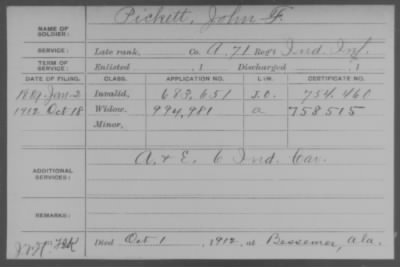 NAME OF SOLDIER: Pickett, John F.
SERVICE: Late rank, Co. A, 71 Reg't Ind. Inf.
TERM OF SERVICE: Enlisted , 1 Discharged , 1
DATE OF FILING. CLASS. APPLICATION NO. LAW. CERTIFICATE NO.
1889 Jan. 2 Invalid, 683,651 J.O. 754.460
1912 Oct 18 Widow, 994,981 a 758515
Minor,
ADDITIONAL SERVICES: A. & E. 6 Ind. Cav.
REMARKS:
Died Oct 1, 1912, at Bessemer, Ala.